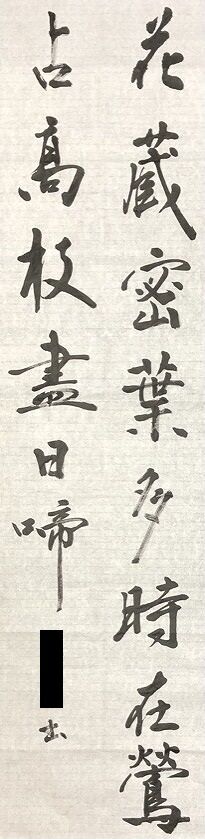 花蔵密葉多時在鶯
占高枝盡日啼
出